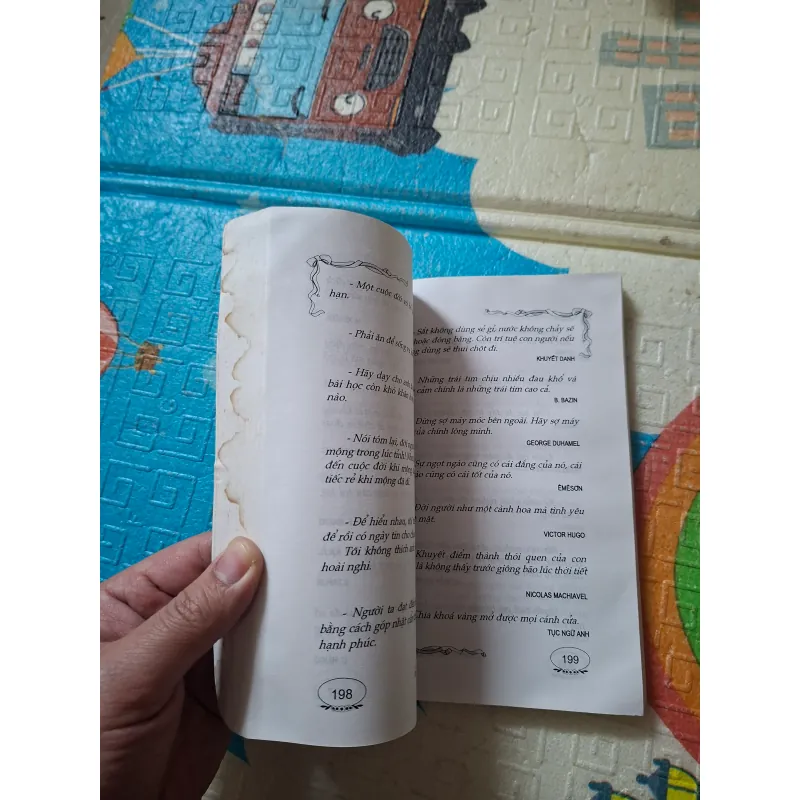 - Một cuộc đời
hạn.
- Phải ăn để sống
- Hãy dạy cho
bài học còn khó khăn
nào.
- Nói tóm lại, đời
mộng trong lúc tỉnh!
đến cuộc đời khi mộng
tiếc rẻ khi mộng đã
- Để hiểu nhau,
để rồi có ngày tin cho
Tôi không thích
hoài nghi.
- Người ta đạt
bằng cách góp nhặt
hạnh phúc.
198
Sắt không dùng sẽ gỉ, nước không chảy sẽ
hoặc đóng băng. Còn trí tuệ con người nếu
dùng sẽ thui chột đi.
KHUYẾT DANH
Những trái tim chịu nhiều đau khổ và
cảm chính là những trái tim cao cả.
B. BAZIN
Đừng sợ máy móc bên ngoài. Hãy sợ máy
của chính lòng mình.
GEORGE DUHAMEL
Sự ngọt ngào cũng có cái đắng của nó, cái
nào cũng có cái tốt của nó.
ÊMÊSƠN
Đời người như một cánh hoa mà tình yêu
mật.
VICTOR HUGO
Khuyết điểm thành thói quen của con
là không thấy trước giông bão lúc thời tiết
NICOLAS MACHIAVEL
Chìa khoá vàng mở được mọi cánh cửa.
TỤC NGỮ ANH
199